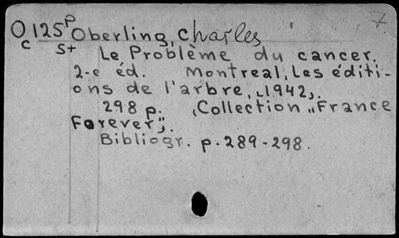 7
O 125 P Oberling, Charles
c St
Le Problème du cancer.
2-e éd. Montreal, Les éditi-
ons de l'arbre, [1942].
298 p. (Collection „France
Forever").
Bibliogr. p. 289-298.